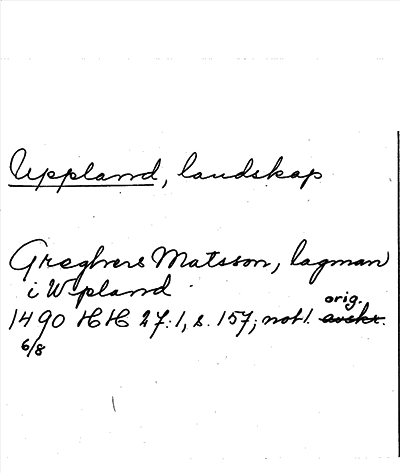 Uppland, landskap
Greghers Matsson, lagman
i Wpland
orig.
1490 HH 27:1, s. 157; not1. avskr.
6/8